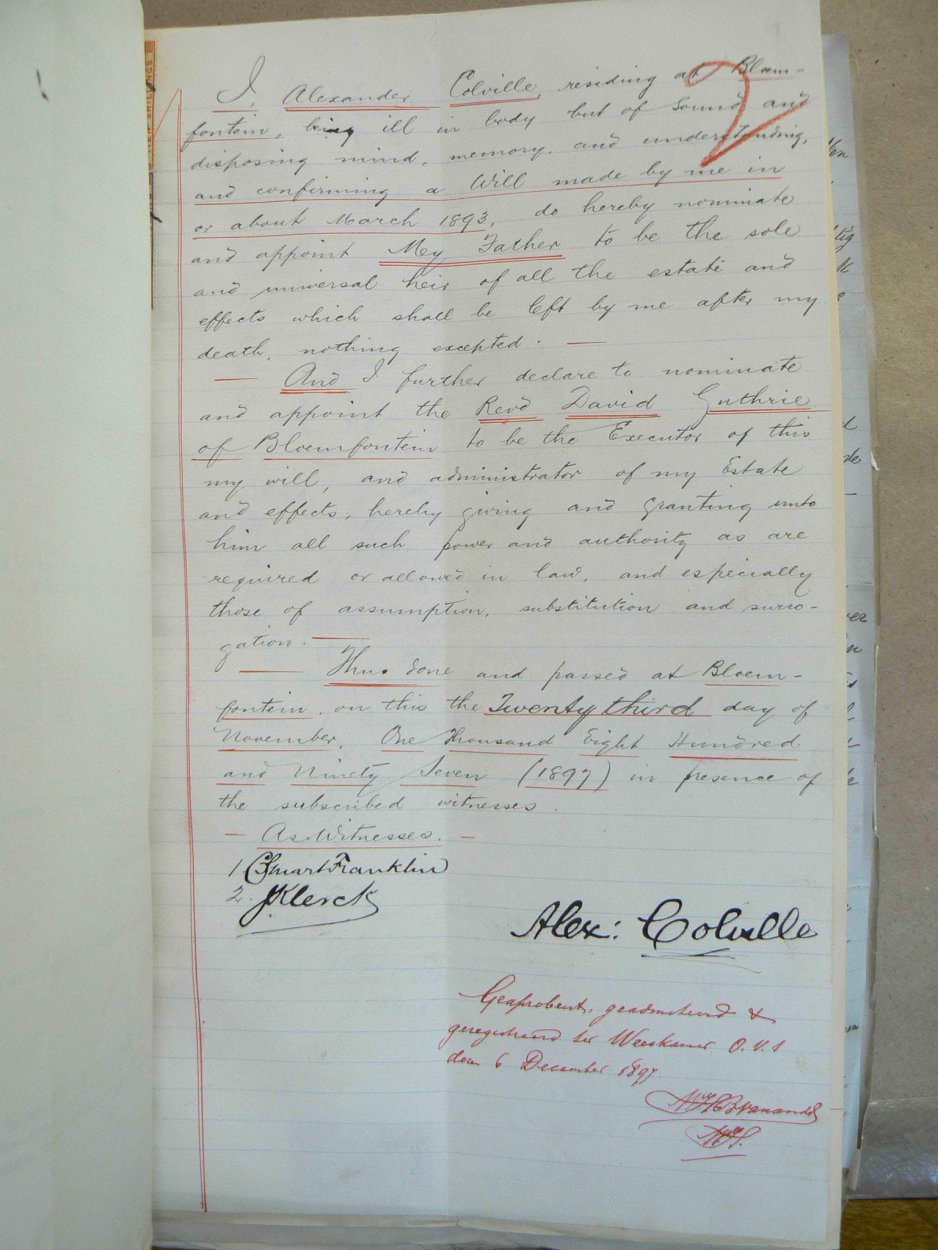 2
I, Alexander Colville, residing at Bloem-
fontein, being ill in body but of sound and
disposing mind, memory and understanding,
and confirming a Will made by me in
or about March 1893, do hereby nominate
and appoint My Father to be the sole
and universal heir of all the estate and
effects which shall be left by me after my
death, nothing excepted. —
— And I further declare to nominate
and appoint the Revd David Guthrie
of Bloemfontein to be the Executor of this
my will, and administrator of my Estate
and effects, hereby giving and granting unto
him all such power and authority as are
required or allowed in law, and especially
those of assumption, substitution and surro-
gation. —
— Thus done and passed at Bloem-
fontein, on this the Twenty third day of
November, One Thousand Eight Hundred
and Ninety Seven (1897) in presence of
the subscribed witnesses.
— As Witnesses. —
1 Stuart Franklin
2. JKlerck
Alex: Colville
Geaprobeerd, geadmitteerd &
geregistreerd ter Weeskamer O.V.S
den 6 December 1897